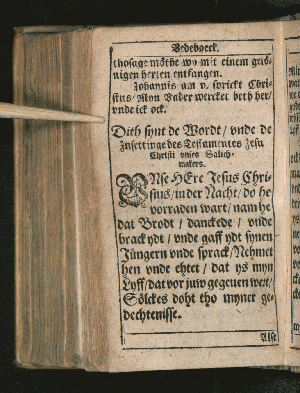 Bedeboeck.
thosage möthe wo mit einem gelö-
uigen herten entfangen.
Johannis am v. sprickt Chri-
stus/ Myn Vader wercket beth her/
vnde ick ock.
Dith synt de Wordt/ vnde de
Insettinge des Testamentes Jesu
Christi vnses Salich-
makers.
VNse HEre Jesus Chri-
stus/ in der Nacht/ do he
vorraden wart/ nam he
dat Brodt/ danckede/ vnde
brack ydt/ vnde gaff ydt synen
Jüngern vnde sprack/ Nehmet
hen vnde ehtet/ dat ys myn
Lyff/ dat vor juw gegeuen wert/
Sölckes doht tho myner ge-
dechtenisse.
Alse